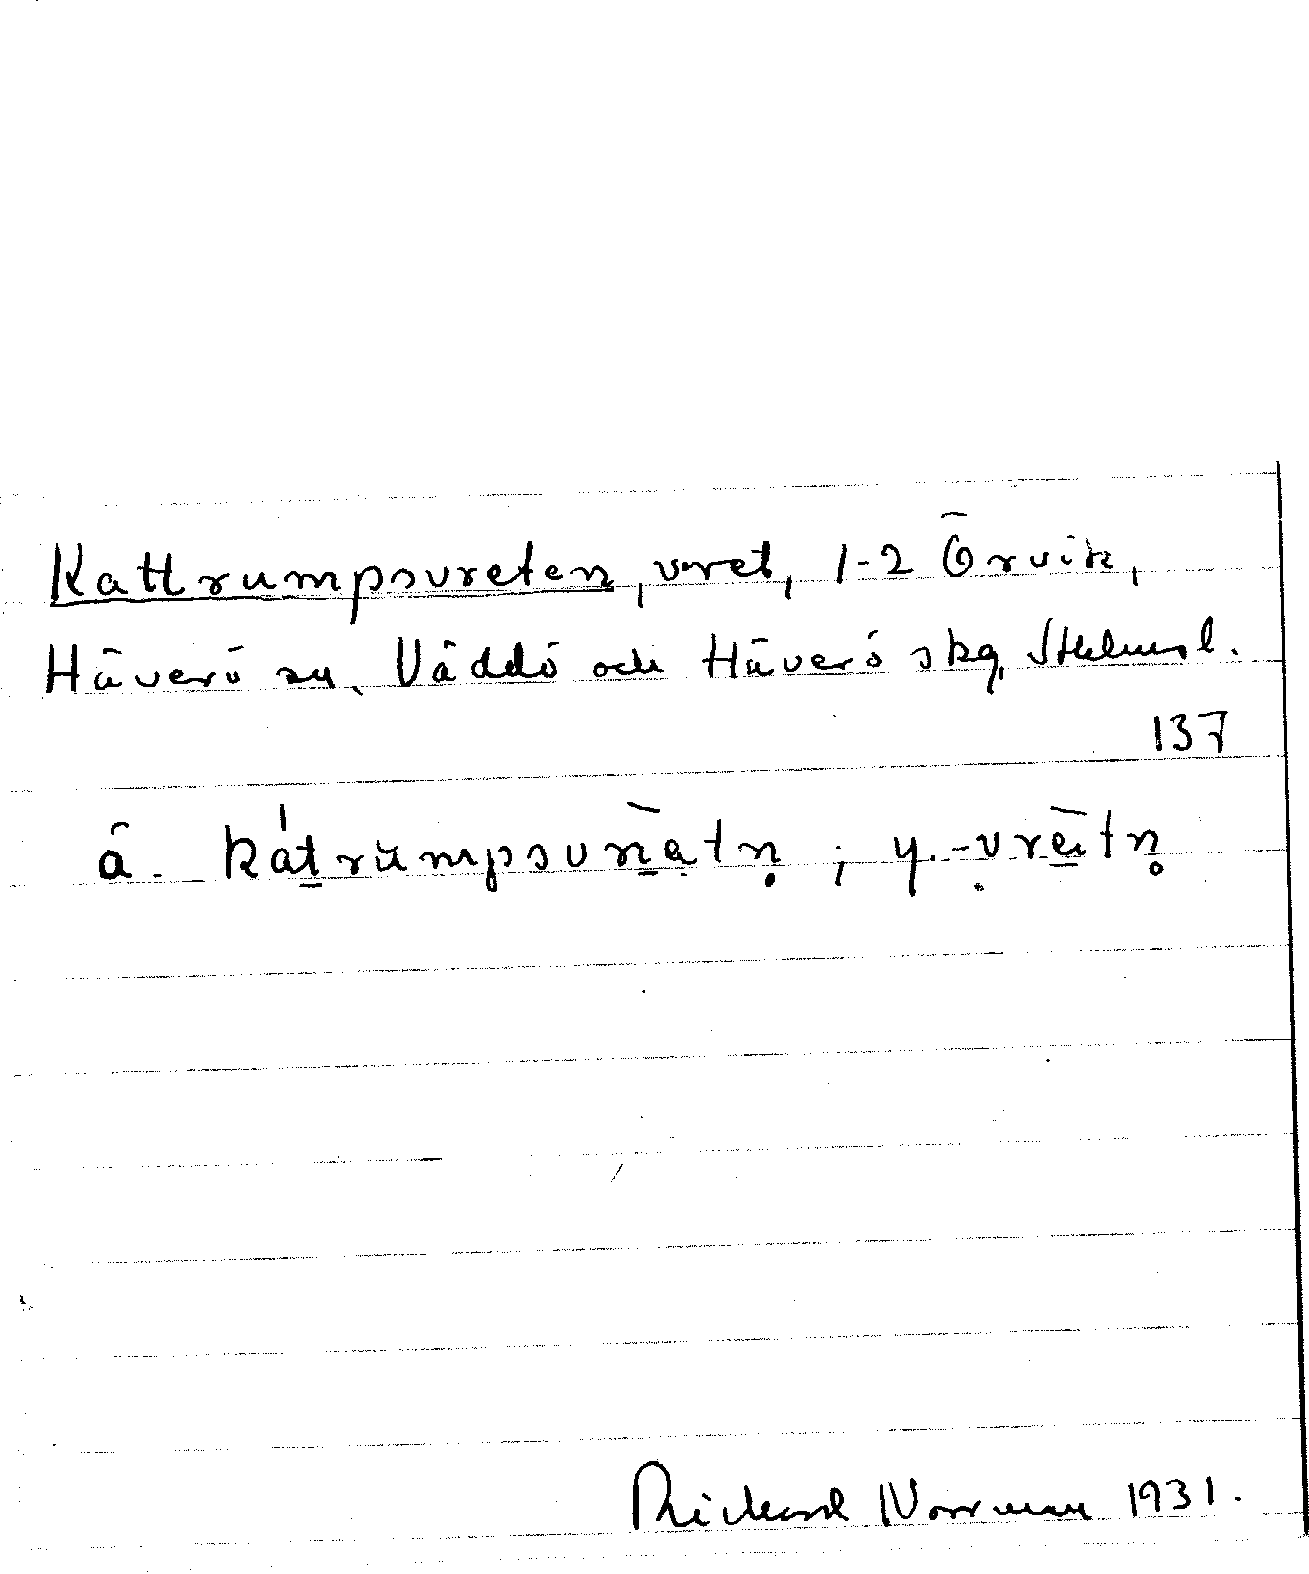 Kattrumpsvreten, vret, 1-2 Örvik,
Häverö sn, Väddö och Häverö skg, Sthlmsl.
137
ä. kátrùmpsvr̄ätn̥ ; y. -vrētn̥
Richard Norrman 1931.